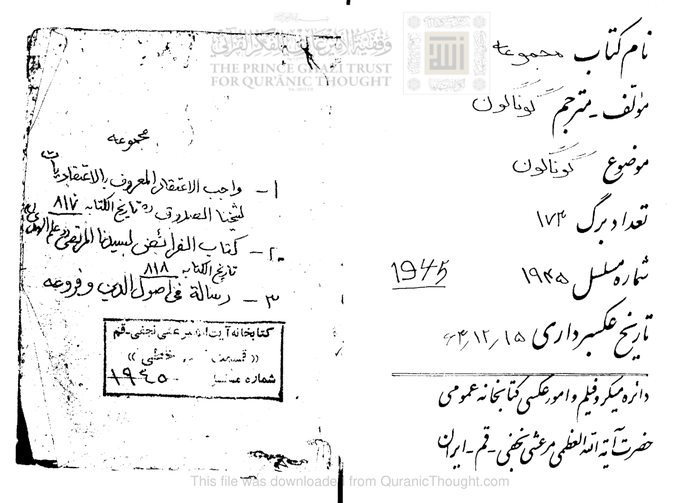 وقفية الأمير غازي للفكر القرآني
THE PRINCE GHAZI TRUST
FOR QURĀNIC THOUGHT
نام کتاب مجموعه
مؤلف ـ مترجم گوناگون
موضوع گوناگون
تعداد برگ ۱۷۴
شماره مسلسل ۱۹۴۵
1945
تاریخ عکسبرداری ۶۴,۱۲,۱۵
دائره میکروفیلم و امور عکسی کتابخانه عمومی
حضرت آیة الله العظمی مرعشی نجفی ـ قم ـ ایران
مجموعه
۱ – واجب الاعتقاد المعروف بالاعتقادیات
لشیخنا الصدوق ره تاریخ الکتابه ۸۱۷
۲ – کتاب الفرائض لسیدنا المرتضی علم الهدی
تاریخ الکتابه ۸۱۸
۳ – رسالة فی اصول الدین و فروعه
کتابخانه آیت الله مرعشی نجفی ـ قم
« خطی »
شماره مسلسل ۱۹٤٥
This file was downloaded from QuranicThought.com